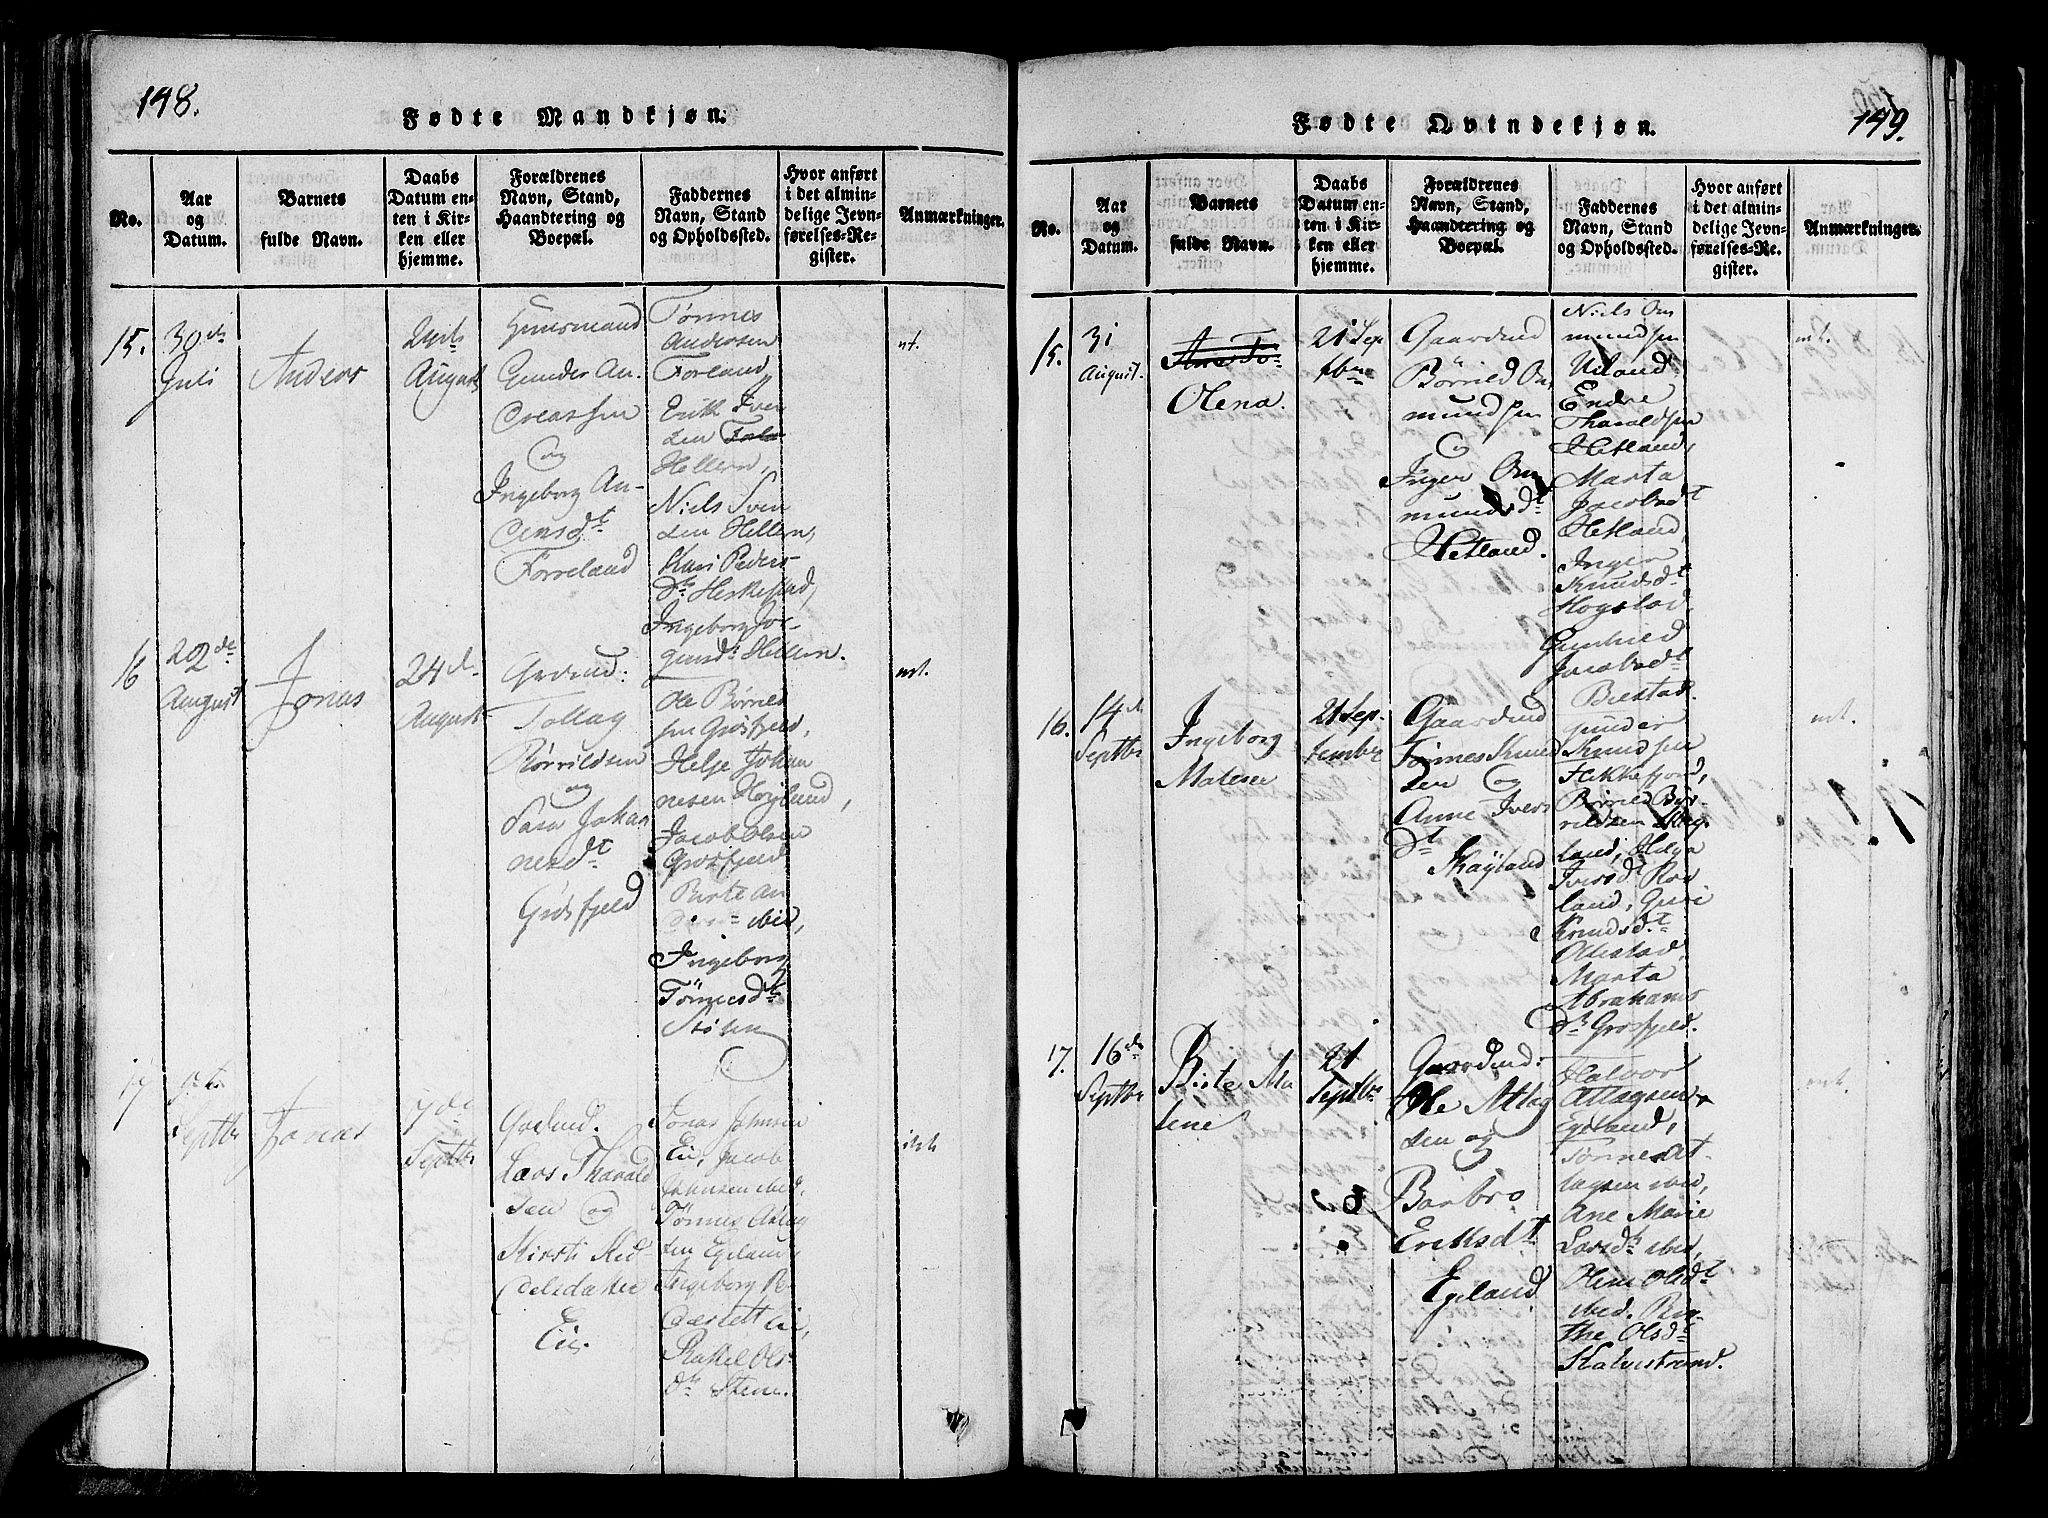 148.
Fødte Mandkjøn.
No.
Aar
og
Datum.
Barnets
fulde Navn.
Daabs
Datum en-
ten i Kir-
ken eller
hjemme.
Forældrenes
Navn, Stand,
Haandtering og
Boepæl.
Faddernes
Navn, Stand
og Opholdssted.
Hvor anført
i det almin-
delige Jevn-
førelses-Re-
gister.
Anmærkninger.
15.
30de
Juli
Anders
August
Huusmand
Gunder An-
dreassen
og
Ingeborg An-
Forreland
Tønnes
Andersen
Forland,
Erik Iver
sen
Hellern,
Niels Sven
sen Hellern,
Kari Peders
dr Heskestad,
Ingeborg Jør-
gensdr Hellern.
nt.
16
22de
August
Jonas
24de
August
Grdmd:
Tollag
Børrildsen
og
Sara Johan
nesdt
Grøsfjeld
Ole Børrild
sen Grøsfjeld,
Helje Johan
nesen Høyland,
Jacob Olsen
Grøsfjeld
Birte An
ibid,
Ingeborg
Tønnesdt
Stølen
nt.
17
Septbr
Jonas
7de
Septbr
Grdmd.
Lars Tharald
sen og
Kirsti Mid-
Eie.
Jonas Johnsen
Eie, Jacob
Johnsen ibid.
Tønnes Aslag
sen Egeland,
Ingeborg
Rakel Ols-
dr Steene.
149.
Fødte Qvindekjøn.
No.
Aar
og
Datum.
Barnets
fulde Navn.
Daabs
Datum en-
ten i Kir-
ken eller
hjemme.
Forældrenes
Navn, Stand,
Haandtering og
Boepæl.
Faddernes
Navn, Stand
og Opholdssted.
Hvor anført
i det almin-
delige Jevn-
førelses-Re-
gister.
Anmærkninger.
15.
31
August.
Olena.
21 Sep
tbr
Gaardmd
Børrild Om
mundsen
og
Inger Om
mundsdt
Hetland.
Niels Om
mundsen
Ueland,
Endre
Tharaldsen
Hetland,
Marta
Jacobsdt
Hetland,
Inger
Knudsdt
Hogstad,
Gunhild
Jacobsdt
Bilstad.
nt.
16.
14de
Septbr
Ingeborg
Malene
21 Sep-
tember
Gaardmd
Tønnes Knud
sen og
Anne Ivers
dt
Skayland
Gunder
Knudsen
Fikkefjord,
Børrild Bør-
rildsen Øveg-
land, Helga
Iversdt Ros
land, Guri
Knudsdt
Ollestad,
Marta
Abrahams
dr Grøsfjeld.
nt.
17.
16de
Septbr
Birte Ma
lene
21
Septbr
Gaardmd:
Ole Atlag
sen og
Barbro
Eriksdt
Egeland
Halvor
Atlagsen
Egeland,
Tønnes At-
lagsen ibid,
Ane Marie
Larsdt ibid,
Oline Olsdt
ibid. Bir-
the Olsdt
Kalvestrand.
nt.